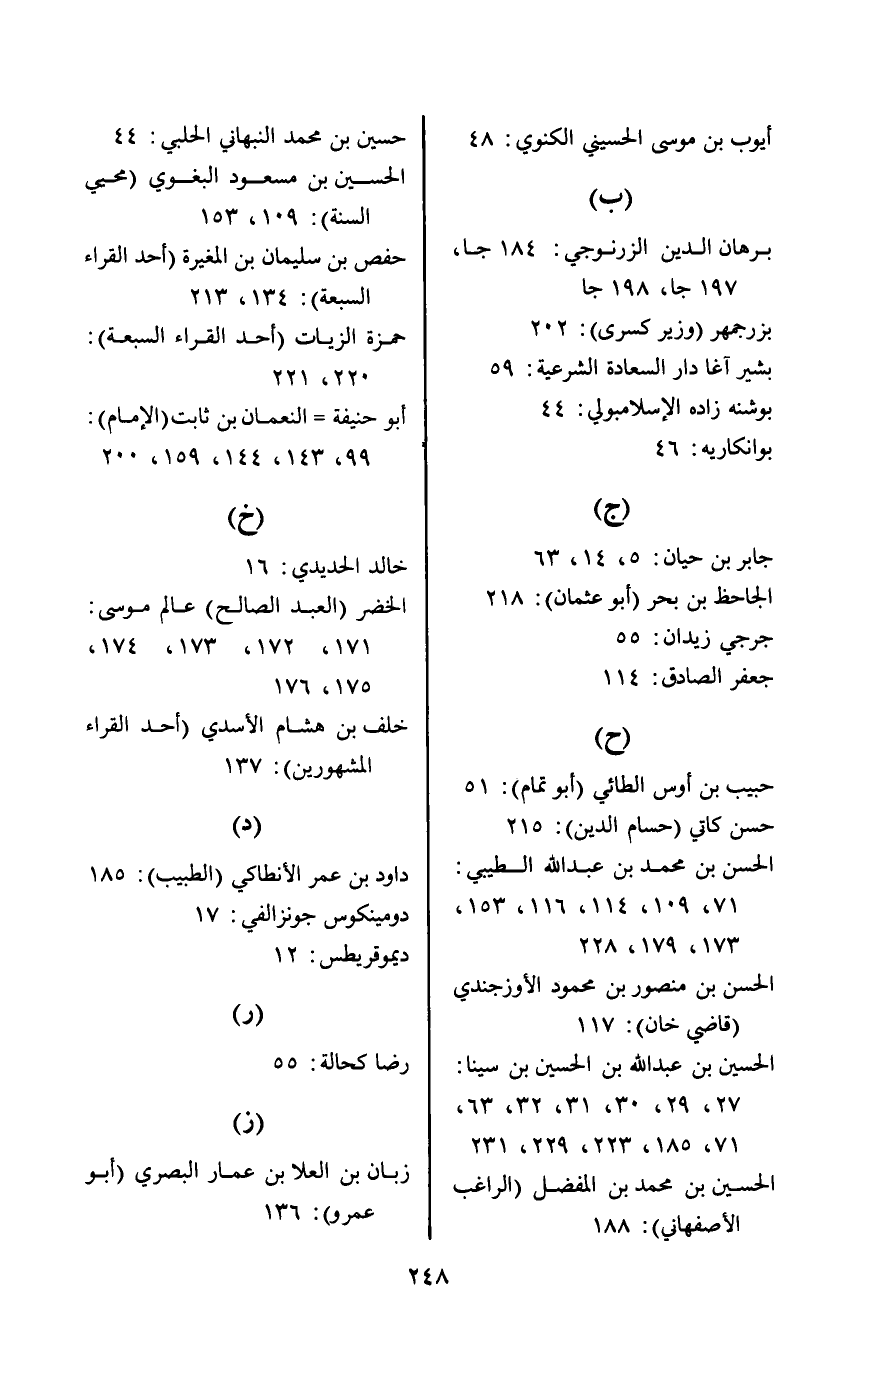 أيوب بن موسى الحسيني الكنوي: ٤٨
(ب)
برهان الدين الزرنوجي: ١٨٤ جا،
١٩٧ جا، ١٩٨ جا
بزرجمهر (وزير كسرى): ٢٠٢
بشير آغا دار السعادة الشرعية: ٥٩
بوشنه زاده الإسلامبولي: ٤٤
بوانكاريه: ٤٦
(ج)
جابر بن حيان: ٥، ١٤، ٦٣
الجاحظ بن بحر (أبو عثمان): ٢١٨
جرجي زيدان: ٥٥
جعفر الصادق: ١١٤
(ح)
حبيب بن أوس الطائي (أبو تمام): ٥١
حسن كاتي (حسام الدين): ٢١٥
الحسن بن محمد بن عبدالله الطيبي:
٧١، ١٠٩، ١١٤، ١١٦، ١٥٣،
١٧٣، ١٧٩، ٢٢٨
الحسن بن منصور بن محمود الأوزجندي
(قاضي خان): ١١٧
الحسين بن عبدالله بن الحسين بن سينا:
٢٧، ٢٩، ٣٠، ٣١، ٣٢، ٦٣،
٧١، ١٨٥، ٢٢٣، ٢٢٩، ٢٣١
الحسين بن محمد بن المفضل (الراغب
الأصفهاني): ١٨٨
حسين بن محمد النبهاني الحلبي: ٤٤
الحسين بن مسعود البغوي (محيي
السنة): ١٠٩، ١٥٣
حفص بن سليمان بن المغيرة (أحد القراء
السبعة): ١٣٤، ٢١٣
حمزة الزيات (أحد القراء السبعة):
٢٢٠، ٢٢١
أبو حنيفة = النعمان بن ثابت (الإمام):
٩٩، ١٤٣، ١٤٤، ١٥٩، ٢٠٠
(خ)
خالد الحديدي: ١٦
الخضر (العبد الصالح) عالم موسى:
١٧١، ١٧٢، ١٧٣، ١٧٤،
١٧٥، ١٧٦
خلف بن هشام الأسدي (أحد القراء
المشهورين): ١٣٧
(د)
داود بن عمر الأنطاكي (الطبيب): ١٨٥
دومينكوس جونزالفي: ١٧
ديموقريطس: ١٢
(ر)
رضا كحالة: ٥٥
(ز)
زبان بن العلا بن عمار البصري (أبو
عمرو): ١٣٦
٢٤٨